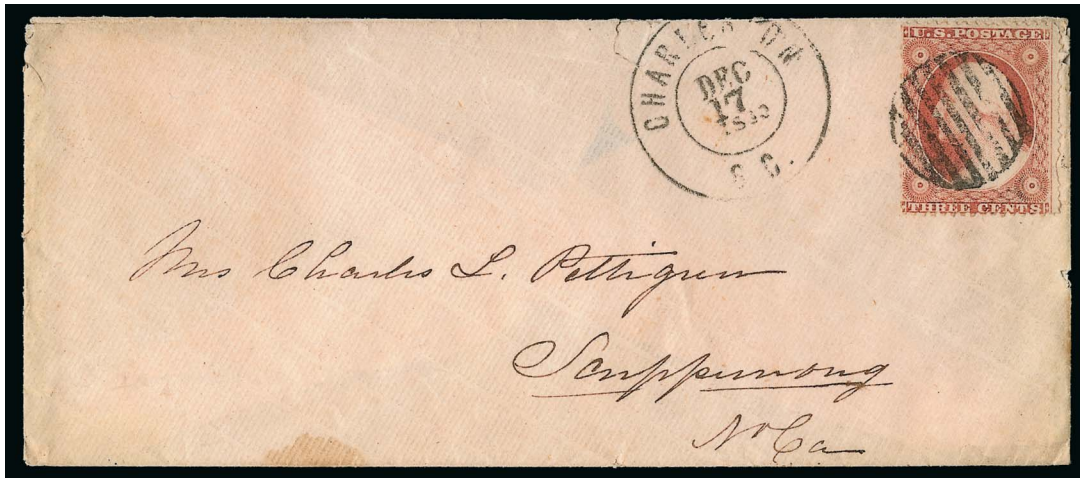 CHARLESTON
DEC
17
S.C.
U.S. POSTAGE
THREE CENTS
Mrs Charles L. Pettigrew
Scuppernong
No Ca